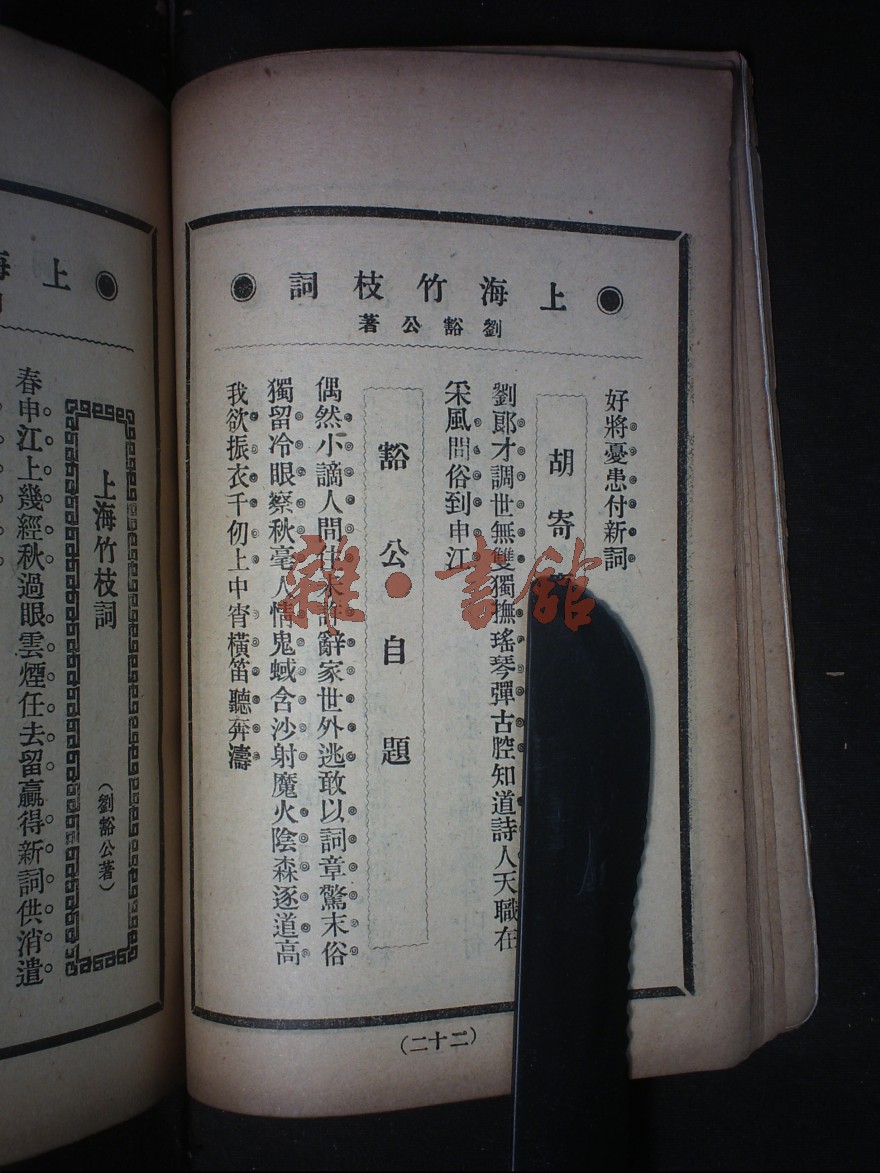 上海竹枝詞
劉豁公著
好將憂患付新詞
胡寄
劉郎才調世無雙獨撫瑤琴彈古腔知道詩人天職在
采風問俗到申江
豁公自題
偶然小謫人間住未許辭家世外逃敢以詞章驚末俗
獨留冷眼察秋毫人情鬼蜮含沙射魔火陰森逐道高
我欲振衣千仞上中宵橫笛聽奔濤
(二十二)
上海
上海竹枝詞
(劉豁公著)
春申江上幾經秋過眼雲煙任去留贏得新詞供消遣
雜·書館